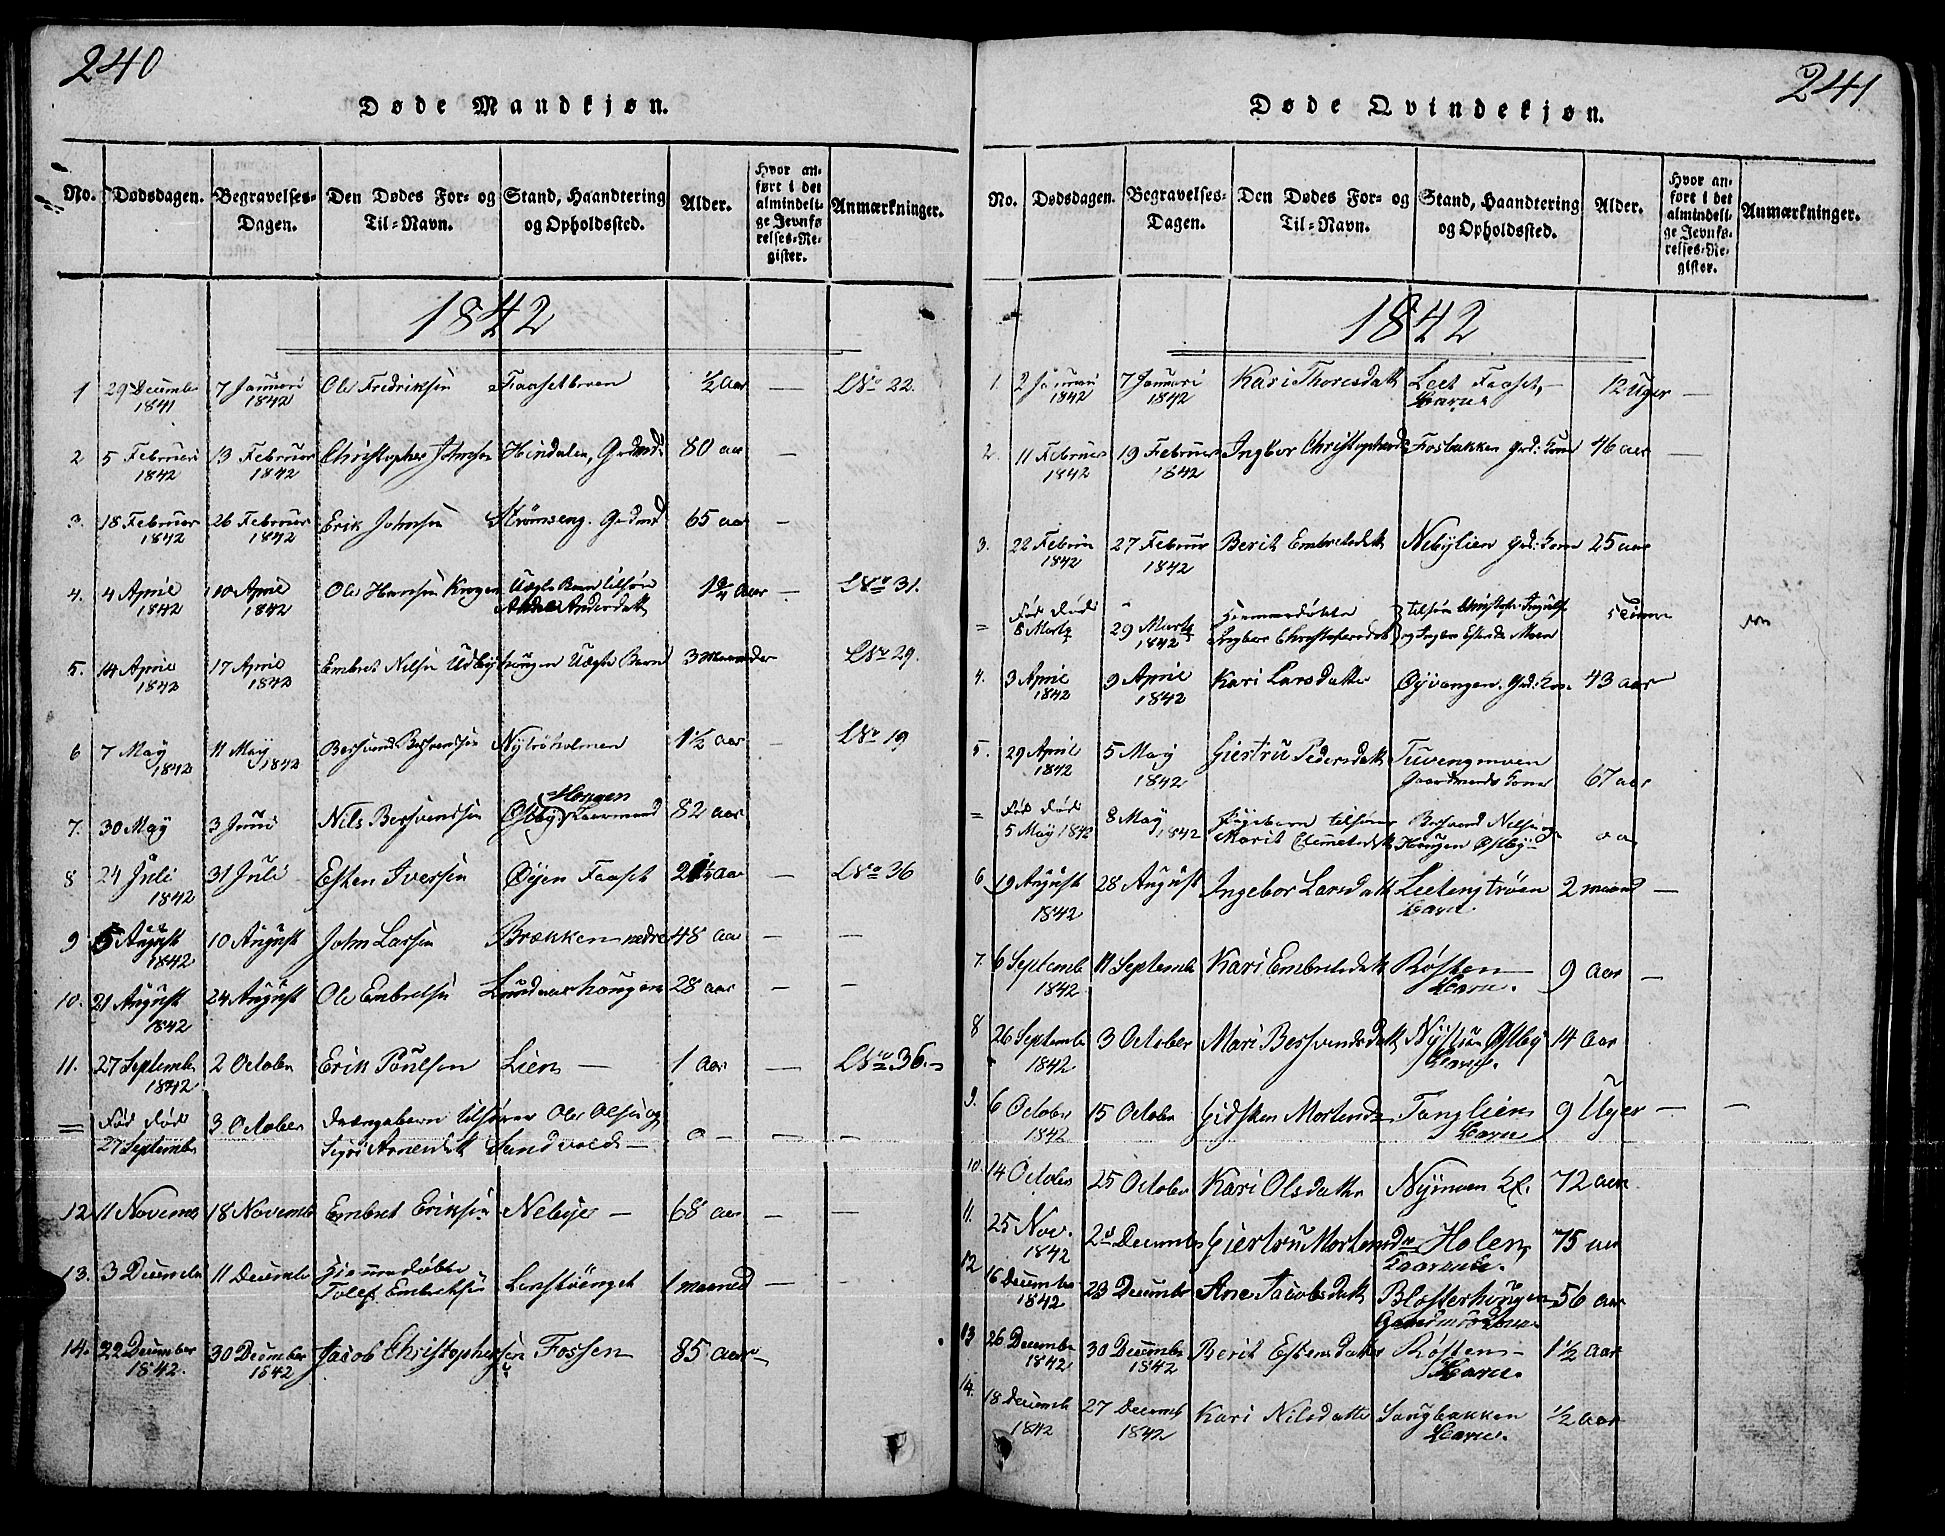 240
Døde Mandkjøn.
No. Dødsdagen. Begravelses-Dagen. Den Dødes For- og Til-Navn. Stand, Haandtering og Opholdssted. Alder. Hvor anført i det almindelige Jevnførelses-Register. Anmærkninger.
1842
1 29 Decembr 1841 7 Januari 1842 Ole Fredriksen Faasetboren ½ Aar — No 22.
2 5 Februari 1842 13 Februar 1842 Christopher Johnsen Hindalen, Grdmd 80 aar —
3. 18 Februar 1842 26 Februar 1842 Erik Johnsen Strömseng. Grdmd 65 aar —
4. 4 April 1842 10 April 1842 Ole Hansen Krogen Uægte Barn tilhöre Andersdatt 1¾ Aar — No 31.
5. 14 April 1842 17 April 1842 Embret Nilsen Udbyhaugen Uægte Barn 3 Maaneder No 29.
6 7 May 1842 11 May 1842 Bersvend Bersvendsen Nytröholmen 1½ aar — No 19
7. 30 May 3 Juni Nils Bersvendsen Haugen Østby 82 aar
8 24 Juli 1842 31 Juli Esten Iversen Öyen Faaset 2¼ Aar — No 36
9 5 August 1842 10 August John Larsen Brækken nedre 48 aar — —
10. 21 August 1842 24 August Ole Embretsen haugen 28 aar — —
11. 27 Septembr 1842 2 October Erik Poulsen Lien — 1 aar — No 36. —
= Fød død 27 Septembr 3 October Drængebarn tilhörer Ole Olsen og Sigri Arnesdatt Sandvold — 0 — — —
12. 11 Novembr 18 Novembr Embret Eriksen Nebye — 68 aar — —
13. 3 Decembr 11 Decembr Hiemmedöbte Tollef Embretsen 1 maaned — —
14. 22 December 1842. 30 December 1842 Jacob Christophersen Fossen 85 aar —
241
Døde Qvindekjøn.
No. Dødsdagen. Begravelses-Dagen. Den Dødes For- og Til-Navn. Stand, Haandtering og Opholdssted. Alder. Hvor anført i det almindelige Jevnførelses-Register. Anmærkninger.
1842
1. 2 Januari 1842 7 Januari 1842 Kari Thoresdatt Leet Faaset, 12 Uger —
2. 11 Februar 1842 19 Februar 1842 Ingbor Christophersd Fosbakken Grd: Kone 46 aar —
3. 22 Februar 1842 27 Februar 1842 Berit Embretsdatt Nebylien Grd: Kone 25 aar
= Fød död 8 Marty 29 Marty 1842 Hiemmedöbte Ingbor Christofersdatt tilhöre Christofer og Ingeborg Moen 5 Timer
4. 3 April 1842 9 April 1842 Kari Larsdatter Øyvangen. Grd: Kone 43 aar
5. 29 April 1842 5 May 1842 Giertru Pedersdatt Tuvengmoen Gaardmands Kone 67 aar
= Fød död 5 May 1842 8 May 1842 Pigebarn tilhörer Bersvend Nilsen og Marit Clemetsdatt Haugen Østby
6 19 August 1842 28 August Ingebor Larsdatt 2 maaned —
7. 6 Septemb 1842 11 Septembr Kari Embretsdatt Røsten 9 Aar —
8 26 Septembr 1842 3 October Mari Bersvendsdatt Nystuen Østby 14 aar
9. 6 October 1842 15 October Gidsken Mortensd Tanglien 9 Uger — —
10. 14 October 25 October Kari Olsdatter Nymoen 72 aar
11. 25 Nov. 1842 2d Decembr Giertru Mortensdr Holen 75 aar
12 16 Decembr 1842 23 Decembr Ane Jacobsdatt Blosterhaugen 56 aar
13 26 Decembr 1842 30 Decembr 1842 Berit Estensdatter Røsten — 1½ Aar
14. 18 Decembr 1842 27 Decemb 1842 Kari Nilsdatter ½ aar